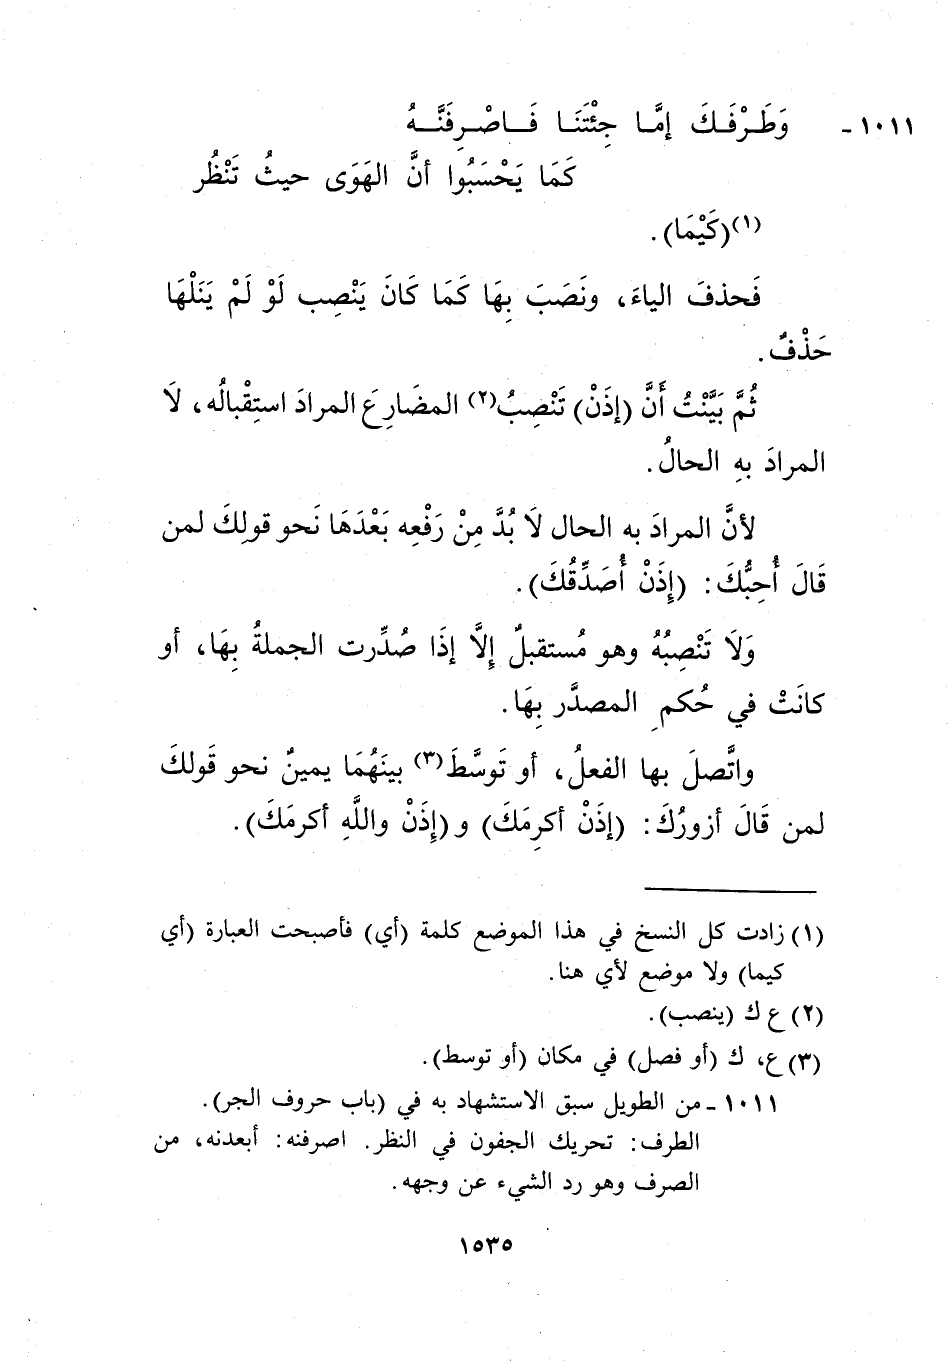 ١٠١١ - وَطَـرْفَـكَ إمَّـا جِئْتَنَـا فَـاصْـرِفَنَّــهُ
كَمَا يَحْسَبُوا أنَّ الهَوَى حيثُ تَنْظُر
(١)(كَيْمَا).
فَحذفَ الياءَ، ونَصَبَ بِهَا كَمَا كَانَ يَنْصِب لَوْ لَمْ يَنَلْهَا
حَذْفٌ.
ثُمَّ بَيَّنْتُ أَنَّ (إذَنْ) تَنْصِبُ(٢) المضَارِعَ المرادَ استِقْبالُه، لَا
المرادَ بهِ الحالُ.
لأنَّ المرادَ به الحال لَا بُدَّ مِنْ رَفْعِه بَعْدَهَا نَحو قولِكَ لمن
قَالَ أُحِبُّكَ: (إِذَنْ أُصَدِّقُكَ).
وَلَا تَنْصِبُهُ وهو مُستقبلٌ إِلَّا إذَا صُدِّرت الجملةُ بِهَا، أو
كانَتْ في حُكمِ المصدَّر بِهَا.
واتَّصلَ بها الفعلُ، أو تَوسَّطَ(٣) بينَهُمَا يمينٌ نحو قَولكَ
لمن قَالَ أزورُكَ: (إذَنْ أكرِمَكَ) و (إِذَنْ واللَّهِ أكرمَكَ).
(١) زادت كل النسخ في هذا الموضع كلمة (أي) فأصبحت العبارة (أي
كيما) ولا موضع لأي هنا.
(٢) ع ك (ينصب).
(٣) ع، ك (أو فصل) في مكان (أو توسط).
١٠١١ - من الطويل سبق الاستشهاد به في (باب حروف الجر).
الطرف: تحريك الجفون في النظر. اصرفنه: أبعدنه، من
الصرف وهو رد الشيء عن وجهه.
١٥٣٥